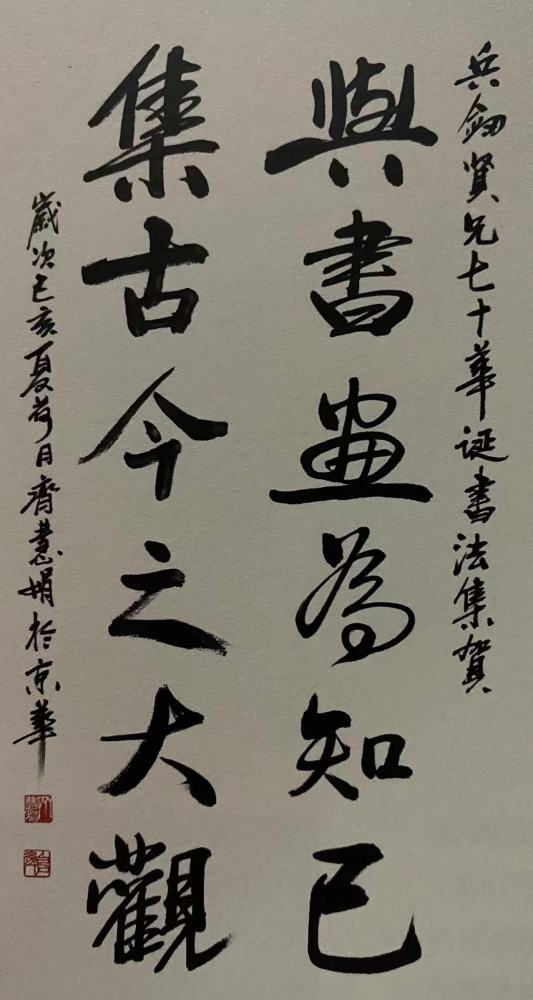 兵劔賢兄七十華誕書法集賀
與書畫為知己
集古今之大觀
歲次己亥夏荷月齊慧娟於京華